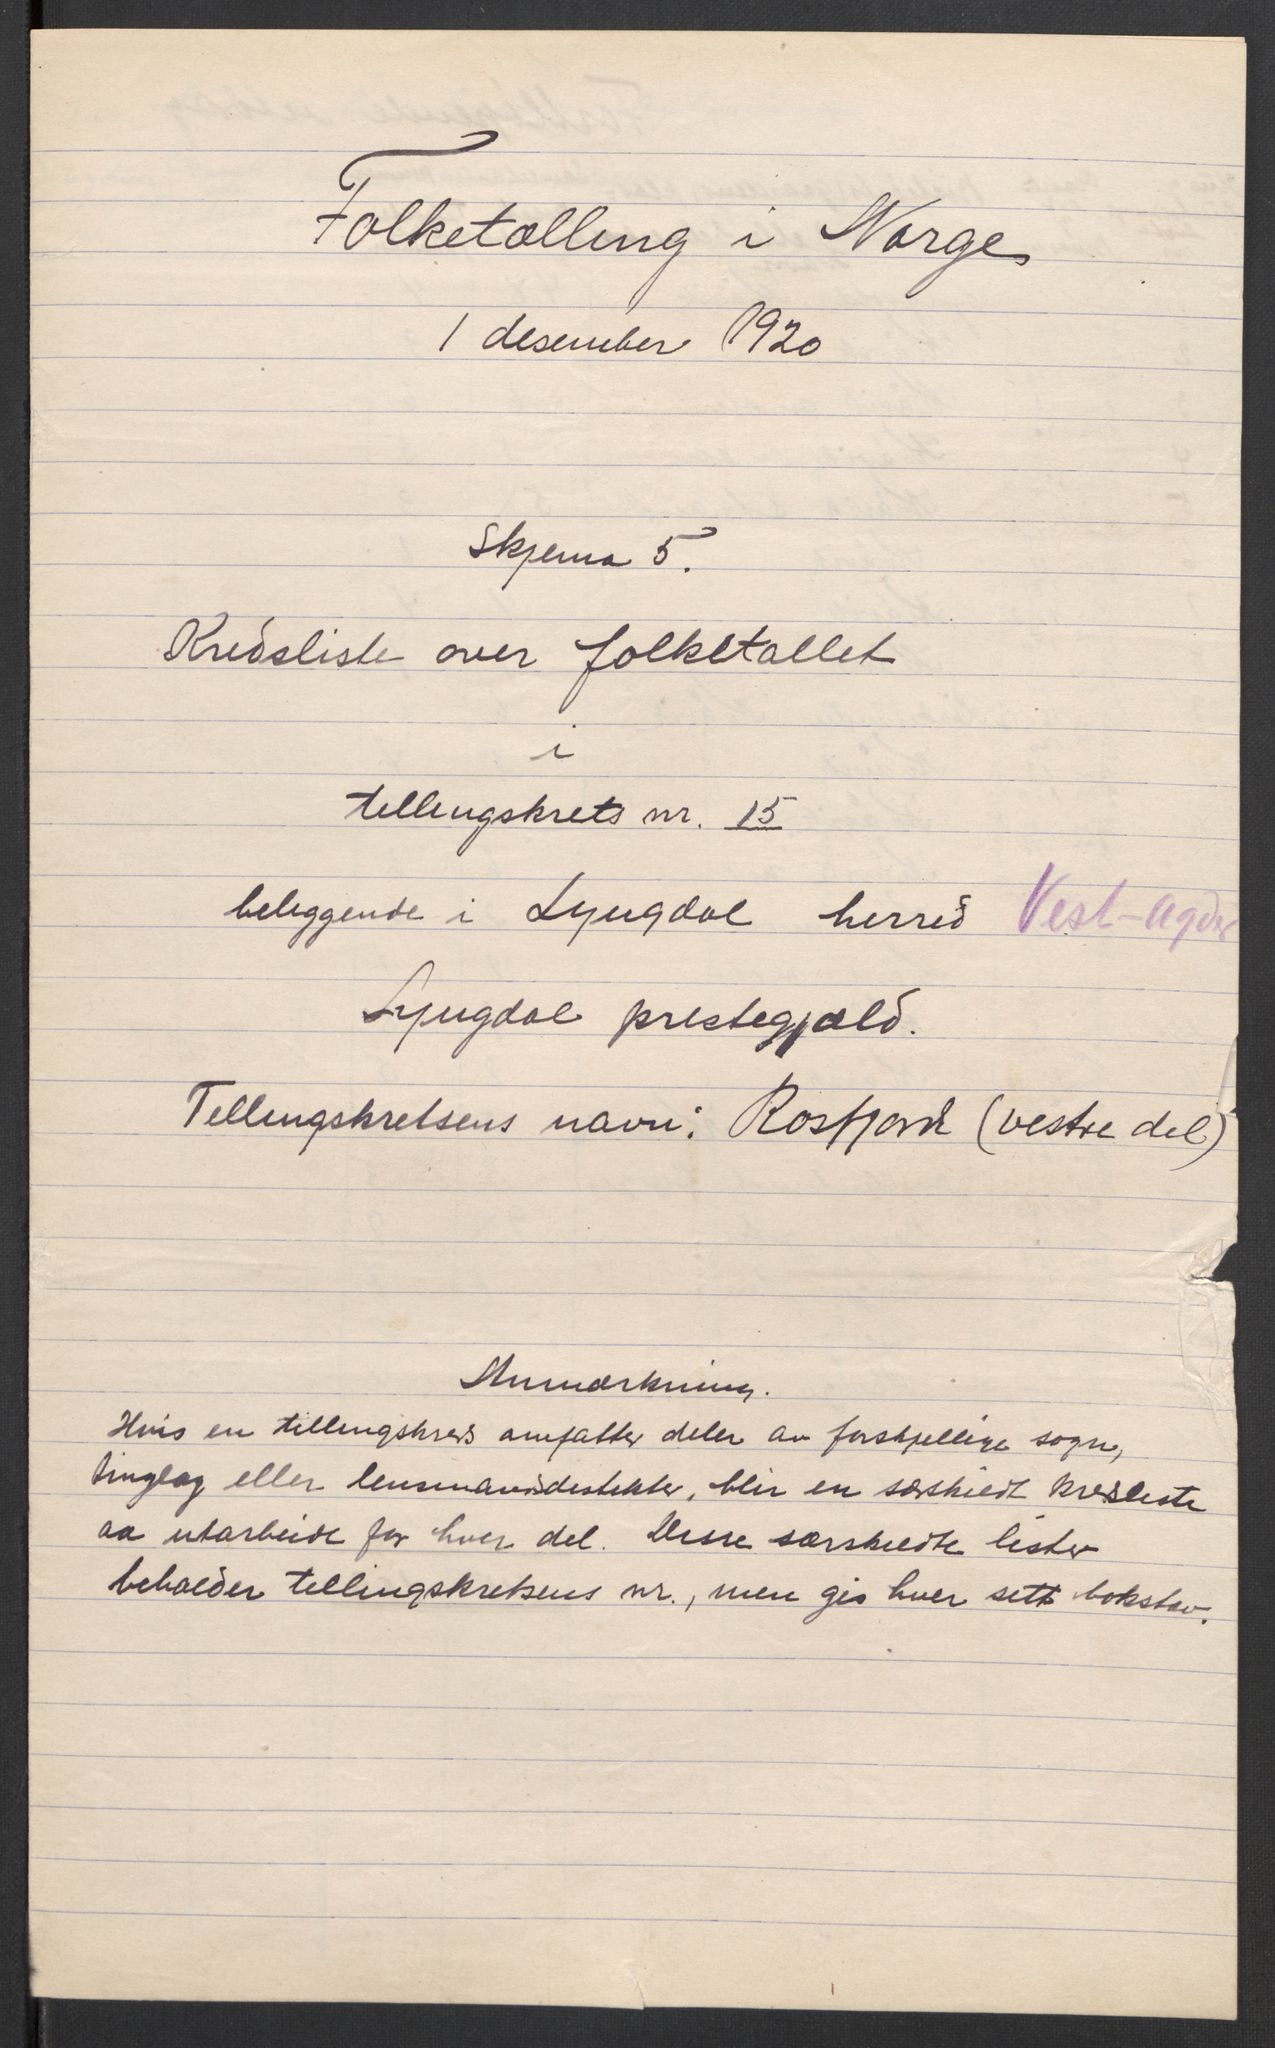 Folketælling i Norge
1 desember 1920
Skjema 5.
Kredsliste over folketallet
i
tellingskrets nr. 15
beliggende i Lyngdal herred Vest-Agder
Lyngdal prestegjæld.
Tellingskretsens navn: Rosfjord (vestre del)
Anmærkning.
Hvis en tellingskreds omfatter deler av forskjellige sogn,
tinglag eller lensmandsdistrikter, blir en særskildt kredsliste
aa utarbeide for hver del. Disse særskildte lister
beholder tellingskretsens nr., men gis hver sitt bokstav.